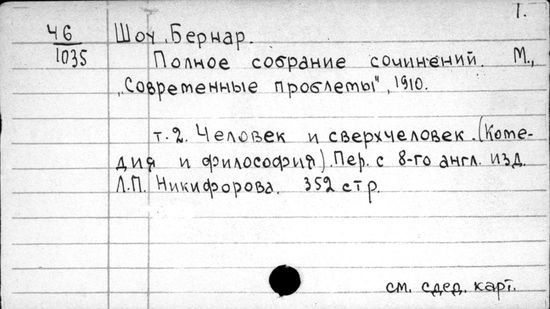 1.
Ч6 Шоу, Бернар.
1035 Полное собрание сочинений. М.,
„Современные проблемы", 1910.
т.2. Человек и сверхчеловек. (Коме-
дия и философия). Пер. с 8-го англ. изд.
Л.П. Никифорова. 352 стр.
см. след. карт.